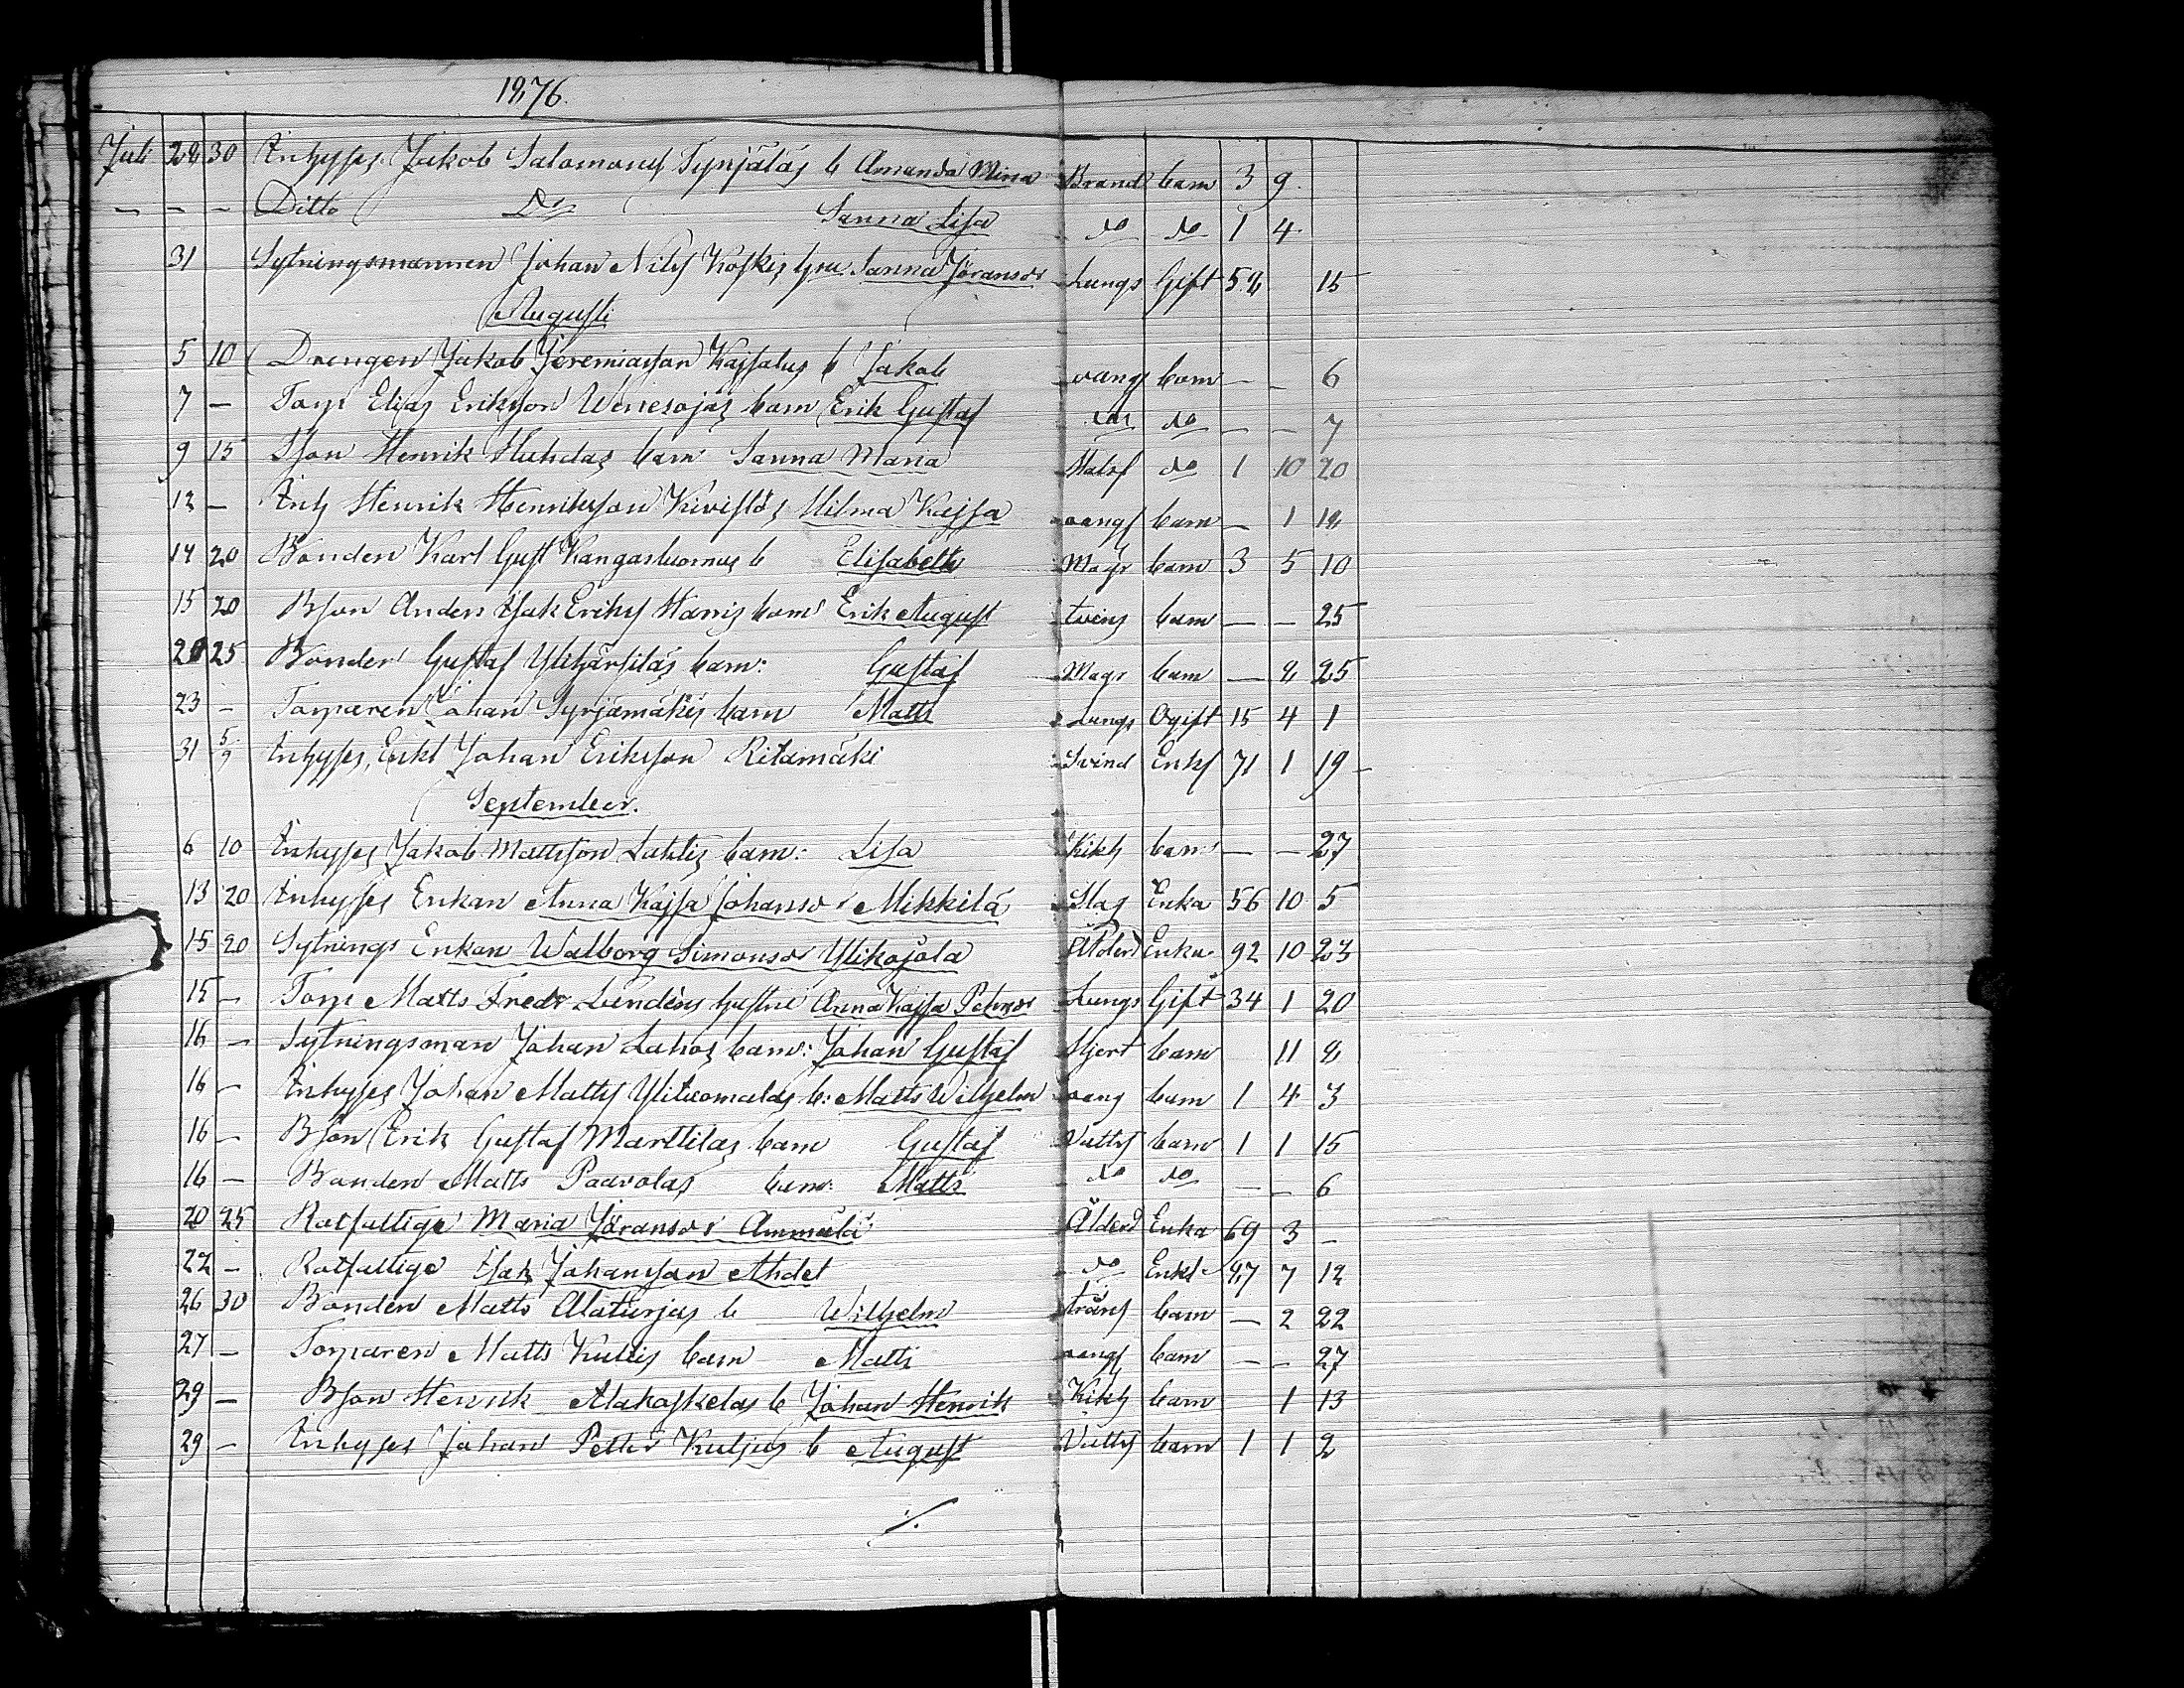 1876.
Juli 28 30 Inhyses Jakob Salomons Tynjäläs b Amanda Mina Brand barn 3 9
— — — Ditto Do Sanna Lisa do do 1 4
31 Sytningsmannen Johan Nils Koskis hru Sanna Jöransdr Lungs Gift 58 15
Augusti
5 10 Drengen Jakob Jeremiasson Kaisalus b Jakob vangs barn — — 6
7 — Torp Elias Eriksson Wenesojas barn Erik Gustaf do do — — 7
9 15 Bson Henrik Huhdas barn Sanna Maria Halsf do 1 10 20
12 — Inh Henrik Henriksson Kivistös Hilma Kajsa vangs barn — 1 18
14 20 Bonden Karl Gust Kangasluomus b Elisabeth Magr barn 3 5 10
15 20 Bson Anders Isak Eriks Harris barn Erik August tvins barn — — 25
20 25 Bonden Gustaf Ylihärsiläs barn: Gustaf Magr barn — 8 25
23 — Torparen Johan Syrjämäkis barn Matts Lungs Ogift 15 4 1
31 5/9 Inhyses, Enkl Johan Eriksson Ritamäki Svind Enkl 71 1 19
September.
6 10 Inhyses Jakob Mattsson Lahtis barn: Lisa Kikh barn — — 27
13 20 Inhyses Enkan Anna Kajsa Johansdr Mikkilä Slag Enka 56 10 5
15 20 Sytnings Enkan Walborg Simonsdr Ylikojola Ålderd Enka 92 10 23
15 — Torp Matts Fredr Lundens hustru Anna Kajsa Petersdr Lungs Gift 34 1 20
16 — Sytningsman Johan Lahos barn: Johan Gustaf Hjert barn 11 8
16 — Inhyses Johan Matts Ylituomalas b: Matts Wilhelm vang barn 1 4 3
16 — Bson Erik Gustaf Marttilas barn Gustaf Vatts barn 1 1 15
16 — Bonden Matts Paavolas barn: Matts do do — — 6
20 25 Rotfattige Maria Jöransdr Ammälä Ålderd Enka 69 3 —
22 — Rotfattige Isak Johansson Ahdet do Enkl 87 7 12
26 30 Bonden Matts Alaturjas b Wilhelm trans barn — 2 22
27 — Torparen Matts Kultis barn Matts vangs barn — — 27
29 — Bson Henrik Alakoskelas b Johan Henrik Kikh barn 1 13
29 — Inhyses Johan Petter Kuljus b August Vatts barn 1 1 2
./.